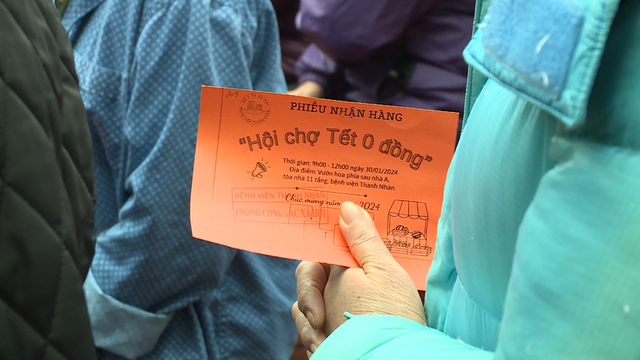 PHIẾU NHẬN HÀNG
"Hội chợ Tết 0 đồng"
Thời gian: 9h00 - 12h00 ngày 30/01/2024
Địa điểm: Vườn hoa phía sau nhà A,
tòa nhà 11 tầng, bệnh viện Thanh Nhàn
Chúc mừng năm 2024
BỆNH VIỆN THANH NHÀN
PHÒNG CÔNG TÁC XÃ HỘI